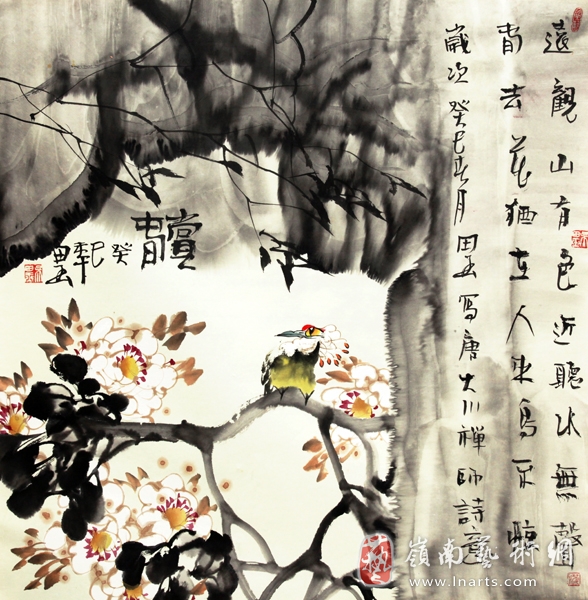 遠觀山有色近聽水無聲
春去花猶在人來鳥不驚
歲次癸巳春月田寫唐大川禪師詩意
賞春
癸巳年
嶺南藝術網
www.lnarts.com